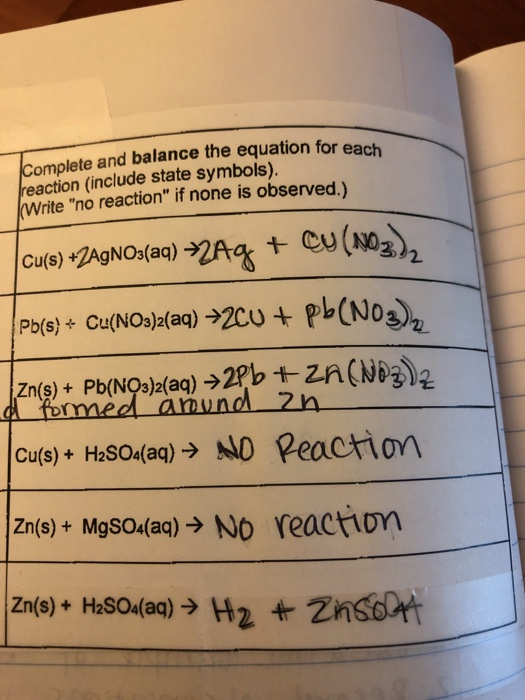 Complete and balance the equation for each
reaction (include state symbols).
(Write "no reaction" if none is observed.)
Cu(s) +2AgNO3(aq) →2Ag + Cu(NO3)2
Pb(s) + Cu(NO3)2(aq) →2Cu + pb(NO3)2
Zn(s) + Pb(NO3)2(aq) →2Pb + Zn(NO3)2
d formed around Zn
Cu(s) + H2SO4(aq) → NO Reaction
Zn(s) + MgSO4(aq) → No reaction
Zn(s) + H2SO4(aq) → H2 + ZnSO4